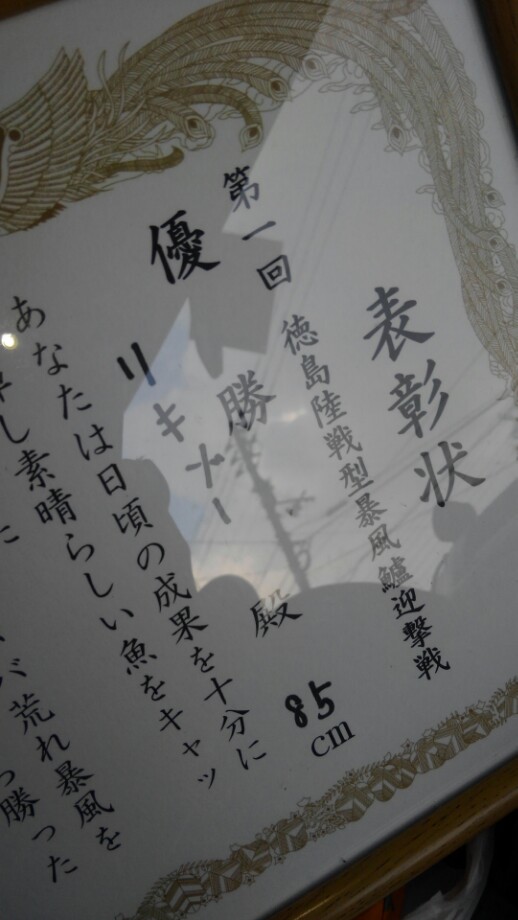 表彰状
第一回 徳島陸戦型暴風鱸迎撃戦
優勝 85cm
リキメー 殿
あなたは日頃の成果を十分に
し素晴らしい魚をキャッ
荒れ暴風を
勝った